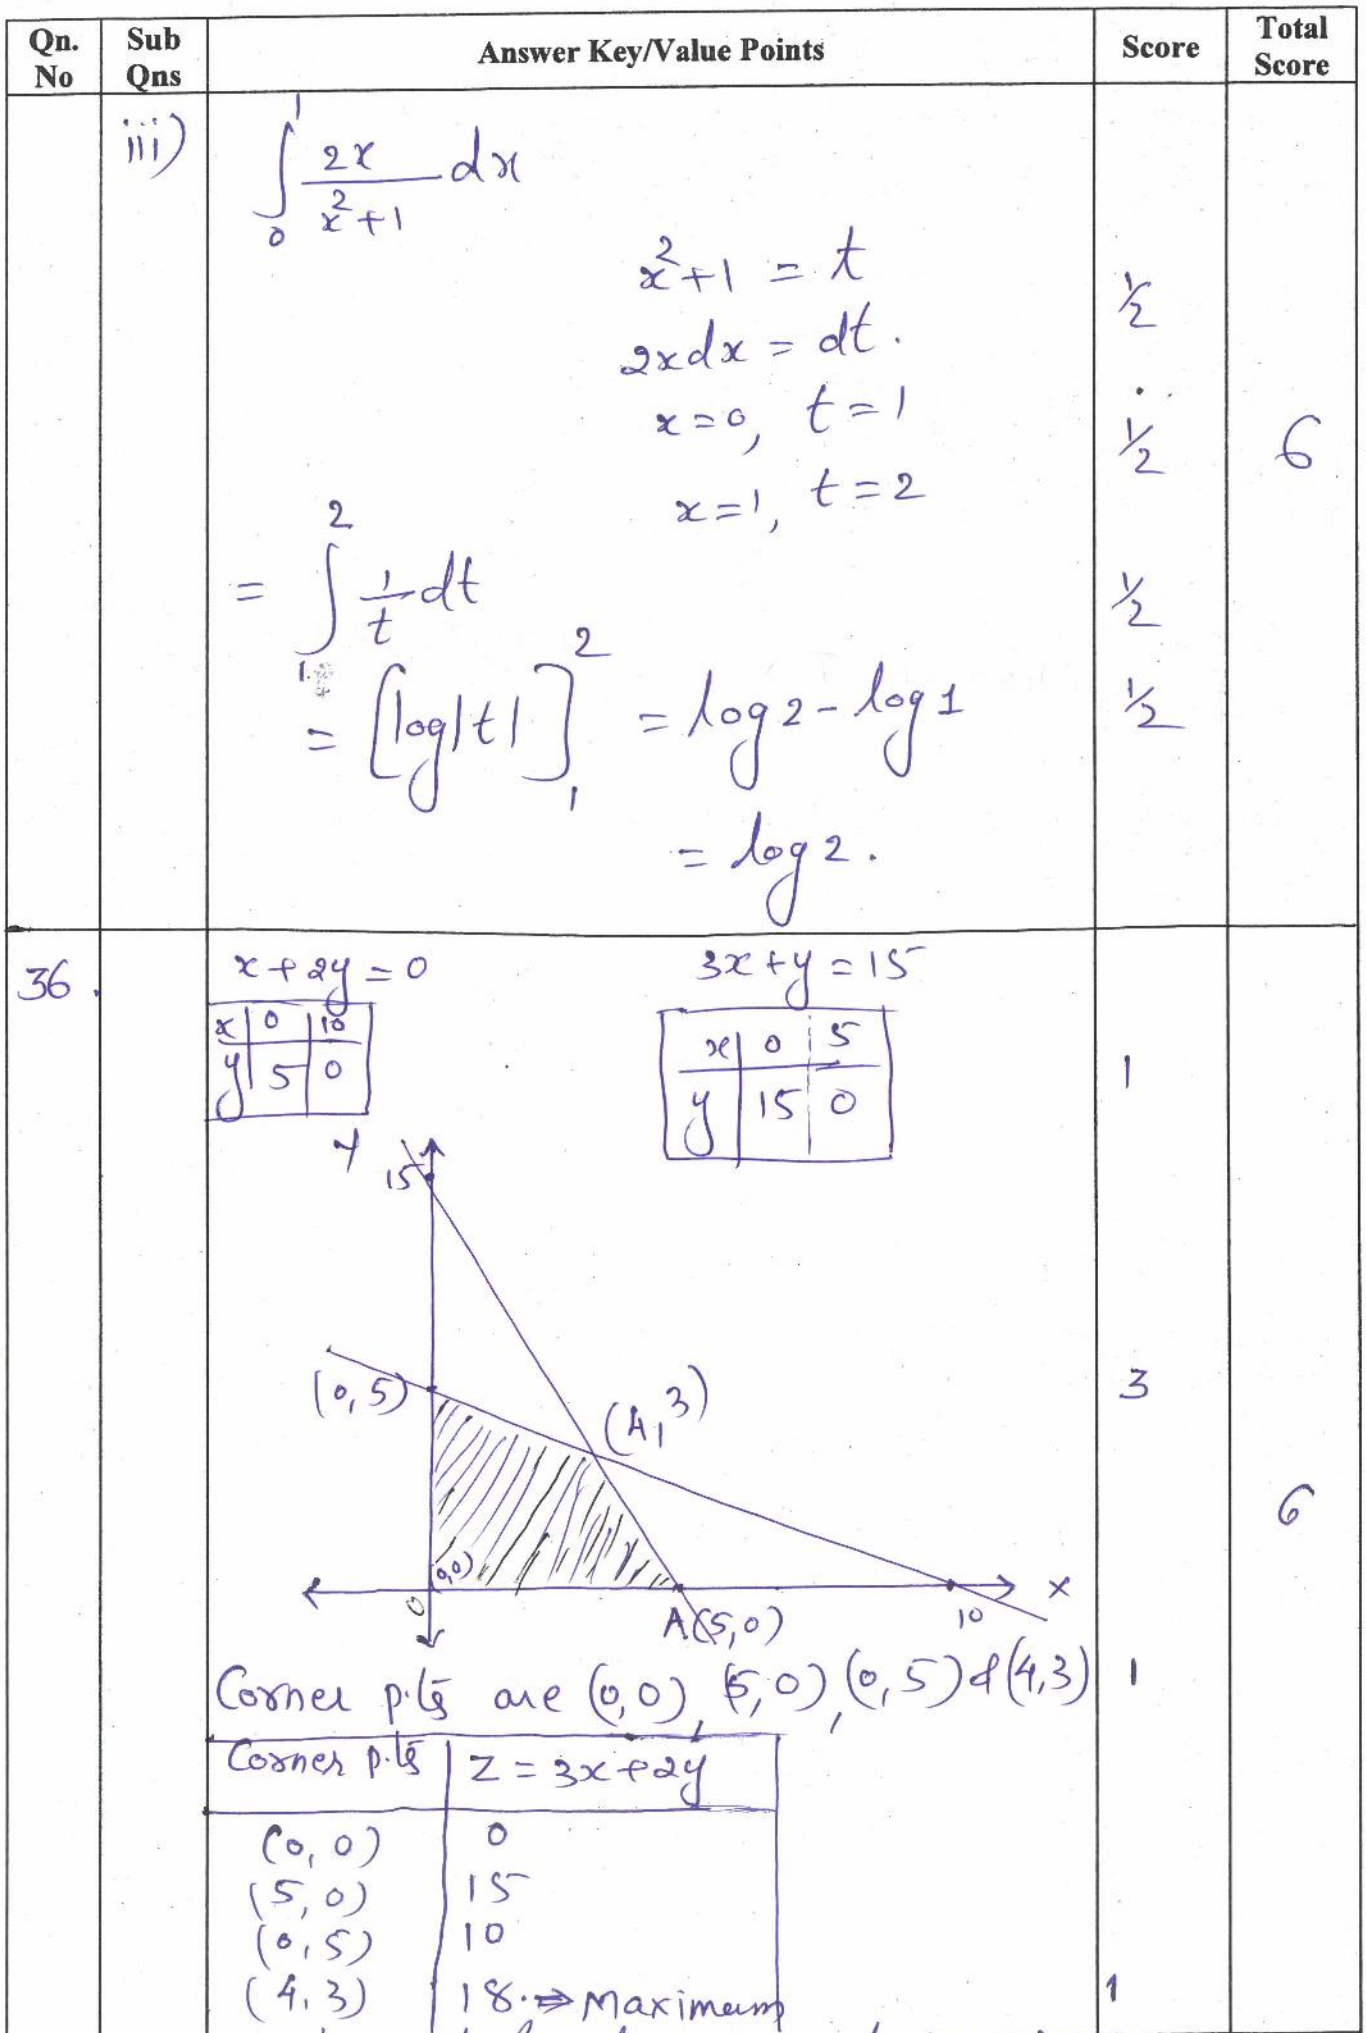 Qn. No | Sub Qns | Answer Key/Value Points | Score | Total Score
iii) ∫₀¹ 2x/(x²+1) dx
x²+1 = t
½
2xdx = dt.
x=0, t=1
½
6
x=1, t=2
= ∫₁² 1/t dt
½
= [log|t|]₁² = log2 - log1
½
= log2.
36. x+2y=0 3x+y=15
x | 0 | 10
y | 5 | 0
x | 0 | 5
y | 15 | 0
1
Y
15
(0,5)
(4,3)
3
6
(0,0)
0
A(5,0)
10
X
Corner p.ts are (0,0), (5,0), (0,5) & (4,3)
1
Corner p.ts | Z = 3x+2y
(0,0) | 0
(5,0) | 15
(0,5) | 10
(4,3) | 18. ⇒ Maximum
1